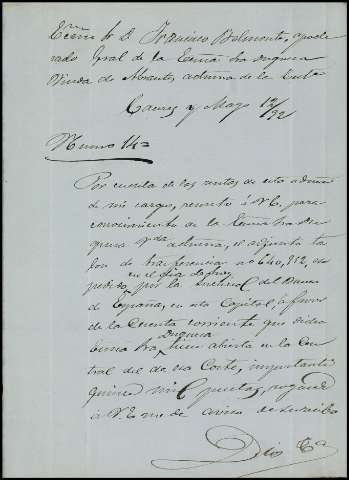 Excmo Sr D. Francisco Belmonte, apode
rado Gral de la Excma Sra Duquesa
Viuda de Abrantes, admina de la Casa
Caceres y Mayo 12/92
Numo 14=
Por cuenta de las rentas de esta admon
de mi cargo, remito á V.E. para
conocimiento de la Excma Sra Du
quesa Vda admina, el adjunto ta
lon de transferencia no 640,912, es
en el dia de hoy
pedido, por la Sucursal del Banco
de España, en esta Capital, á favor
de la Cuenta corriente que dicha
Duquesa
Excma Sra tiene abierta en la Cen
tral del de esa Corte, importante
quince mil pesetas, rogando
á V.E. me de aviso de su recibo
Dios &a